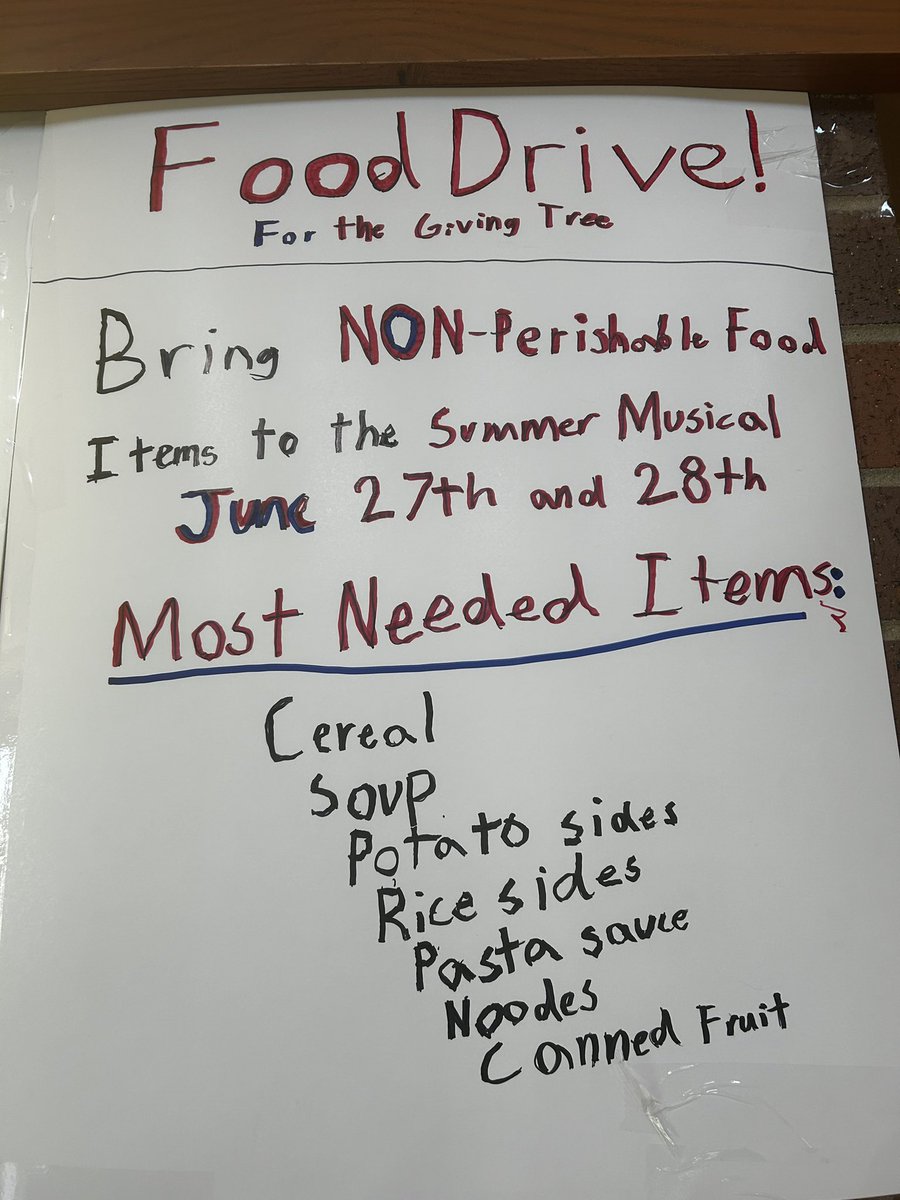 Food Drive!
For the Giving Tree
Bring NON-Perishable Food
Items to the Summer Musical
June 27th and 28th
Most Needed Items:
Cereal
Soup
Potato sides
Rice sides
Pasta sauce
Noodes
Canned Fruit